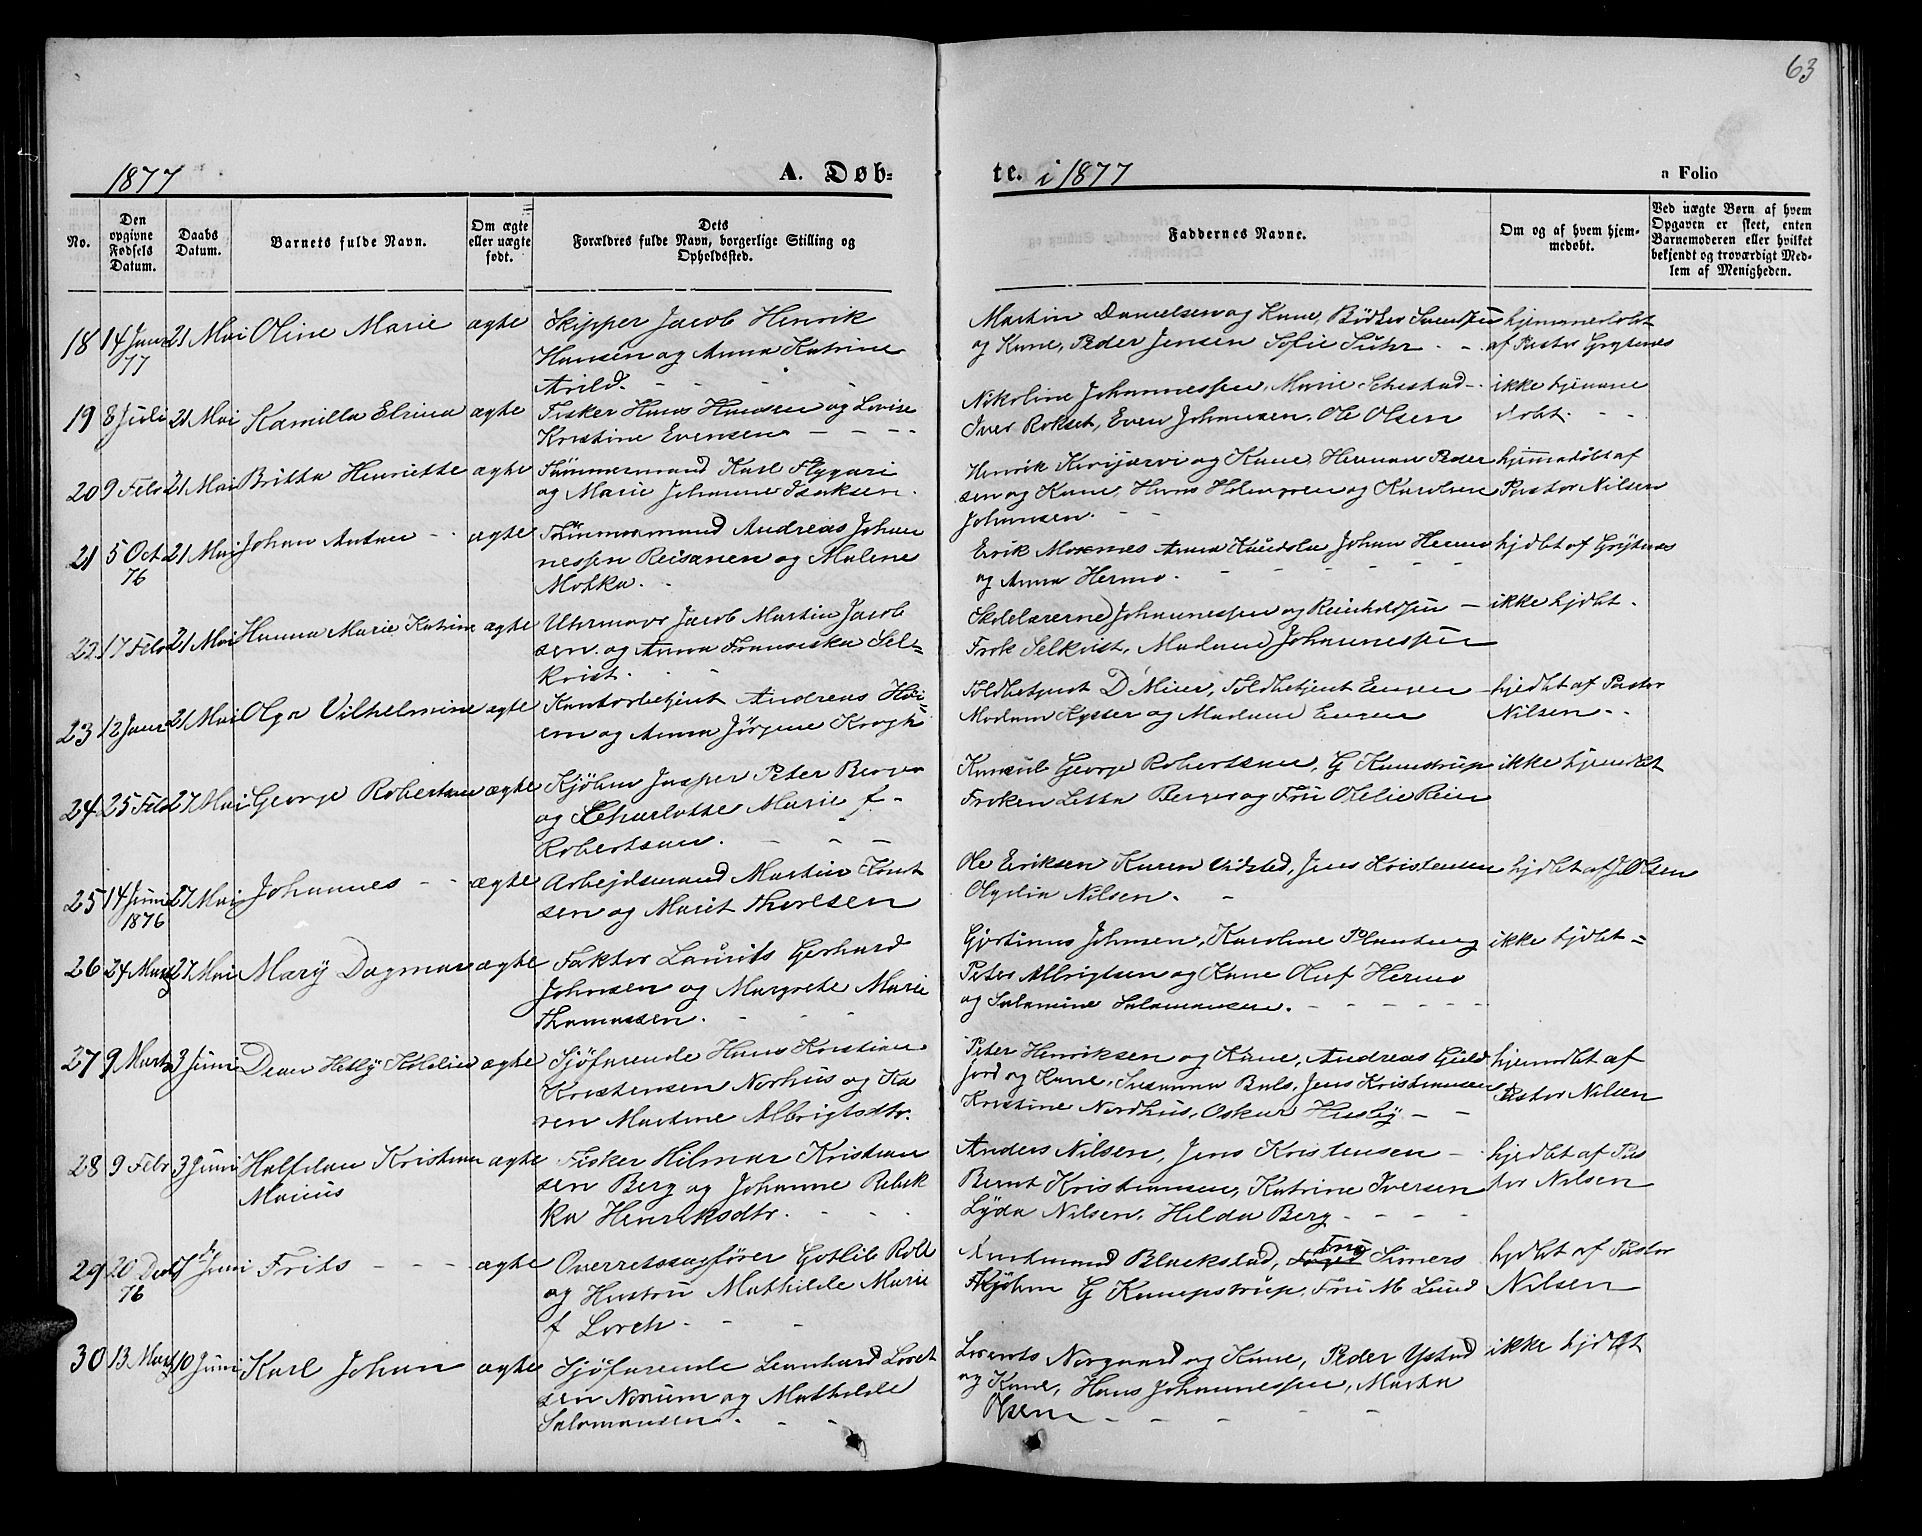 63
1877
A. Døb-
te. i 1877
a Folio
No.
Den opgivne Fødsels Datum.
Daabs Datum.
Barnets fulde Navn.
Om ægte eller uægte født.
Dets Forældres fulde Navn, borgerlige Stilling og Opholdssted.
Faddernes Navne.
Om og af hvem hjem-
medøbt.
Ved uægte Børn af hvem
Opgaven er skeet, enten
Barnemoderen eller hvilket
bekjendt og troværdigt Med-
lem af Menigheden.
18 14 Janr 77 21 Mai Oline Marie ægte
Skipper Jacob Henrik
Hansen og Anna Katrine
Arild.
Martin Danielsen og Kone, Bødker
og Kone, Peder Jensen Sofie Suhr
hjemmedøbt
af Pastor Grytenes
19 8 Juli 21 Mai Kamilla Elina ægte
Fisker Hans Hansen og Lovise
Kristine Evensen
Nikoline Johannessen, Marie
Iver Rokset, Even Johansen, Ole Olsen
ikke hjemme
døbt.
20 9 Febr 21 Mai Britta Henriette ægte
Tømmermand Karl Flygari
og Marie Johanne Isaksen.
Henrik Kivijærvi og Kone, Herman Peder
sen og Kone, Hans Holmgren og Karoline
Johansen.
hjemmedøbt af
Pastor Nilsen
21 5 Oct 76 21 Mai Johan Anton ægte
Tømmermand Andreas Johan
nessen Reisanen og Malene
Mokka.
Erik Moxnes Anna Johan Hermo
og Anna Hermo.
hjdbt af Grytenes
22 17 Febr 21 Mai Hanna Marie Katrine ægte
Uhrmager Jacob Martin Jacob
sen og Anna Franciska Sel=
kvist.
Skolelærerne Johannessen og Reinholdsen
Frøk Selkvist, Madame Johannessen
ikke hjdbt.
23 12 Janr 21 Mai Olga Vilhelmine ægte
Kontorbetjent Andreas
og Anna Jørgine Krogh
Toldbetjent D'Mier, Toldbetjent Ensen
Madam Kyster og Madame Ensen
hjedbt af Pastor
Nilsen.
24 25 Febr 27 Mai George Robertson ægte
Kjøbm Jasper Peter Berger
og Charlotte Marie f.
Robertson.
Konsul George Robertson, G Knudstrup
Frøken Letta Berger og Fru Ofelie Rein
ikke hjemdbt
25 14 Juni 1876 27 Mai Johannes ægte
Arbejdsmand Martin Knut
sen og Marit Thorlsen
Ole Eriksen Karen Vidsted, Jens Kristensen
Olydia Nilsen.
hjdbt af J. Olsen
26 24 Marts 27 Mai Mary Dagmar ægte
Faktor Laurits Gerhard
Johnsen og Margrete Marie
Thomassen.
Gjertinus Johnsen, Karoline Planting
Peter Albrigtsen og Kone Oluf Hermo
og Salamine Salamonsen.
ikke hjdbt
27 9 Marts 3 Juni ægte
Sjøfarende Hans Kristian
Kristensen Norhus og Ka
ren Martine Albrigtsdtr.
Peter Henriksen og Kone, Andreas Guld
fjord og Kone, Susanna Buls, Jens Kristiansen
Kristine Nordhus, Oskar Husby
hjemdbt af
Pastor Nilsen
28 9 Febr 3 Juni Halfdan Kristian
Marius
ægte
Fisker Hilmar Kristian
sen Berg og Johanne Rebek
ka Henriksdtr.
Anders Nilsen, Jens Kristensen
Bernt Kristiansen, Katrine Iversen
Lyda Nilsen, Hilda Berg
hjedbt af Pas
tor Nilsen
29 20 Dcbr 76 7de Juni Frits ægte
Overretssagfører Gotlib Roll
og Hustru Mathilde Marie
f Lorch.
Kjøbmand Blackstad, Fru Simers
Kjøbm G Knudstrup, Fru M Lund
hjdbt af Pastor
Nilsen
30 13 Marts 10 Juni Karl Johan ægte
Sjøfarende Leonhard Lorent
sen Norum og Mathilde
Salomonsen.
Lorents Norgaard og Kone, Peder Ystad
og Kone, Hans Johannessen, Marta
Olsen
ikke hjdbt